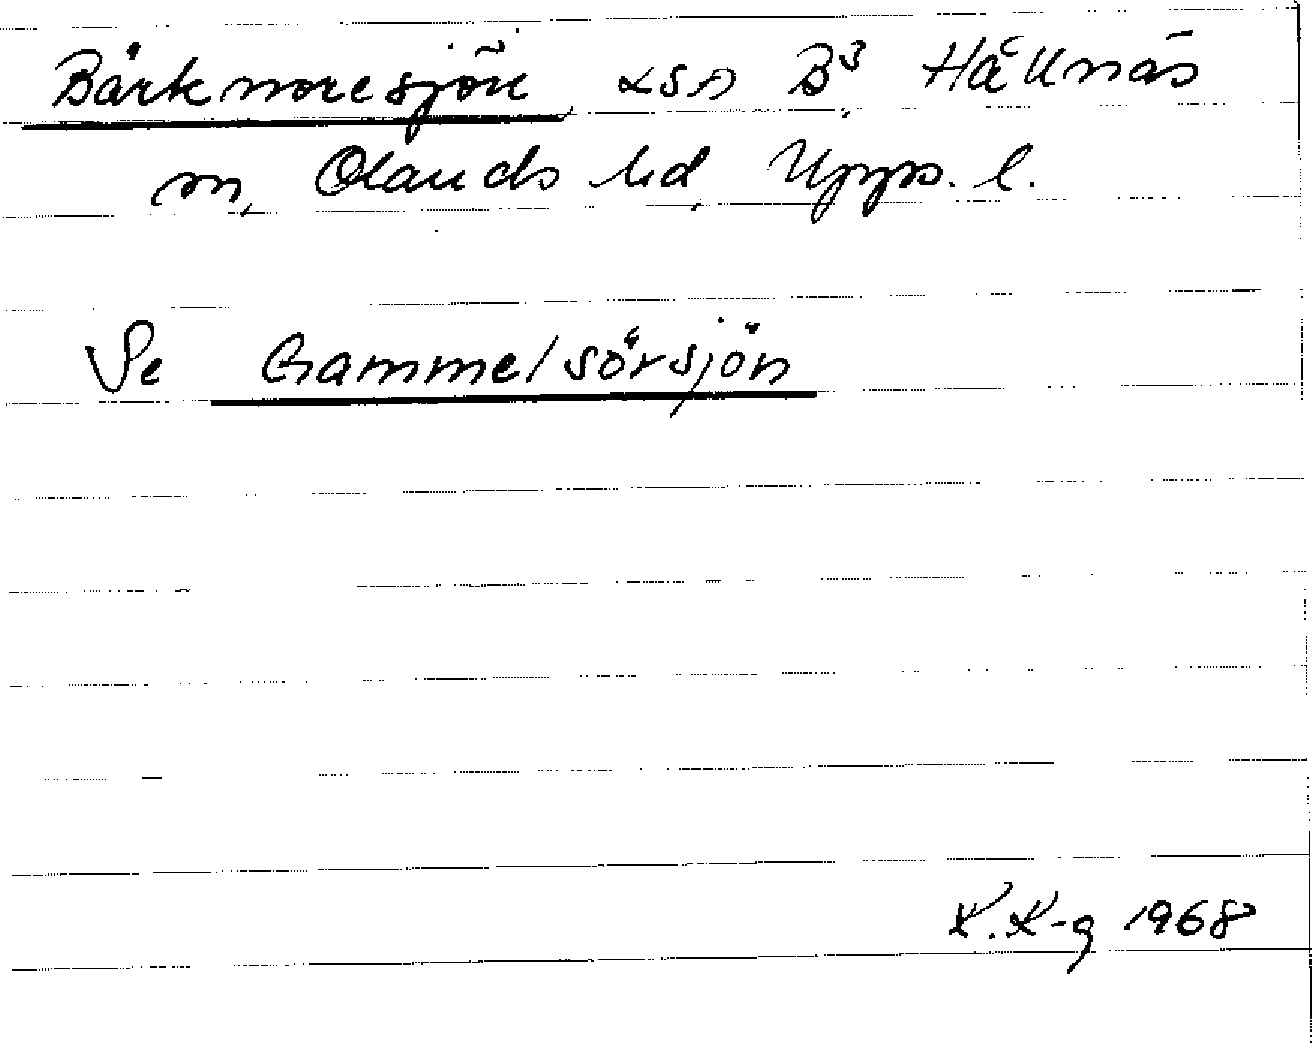 Bärknoresjön, B3, Hållnäs
sn, Olands hd, Upps. l.
Se Gammelsörsjön
K.K-g 1968